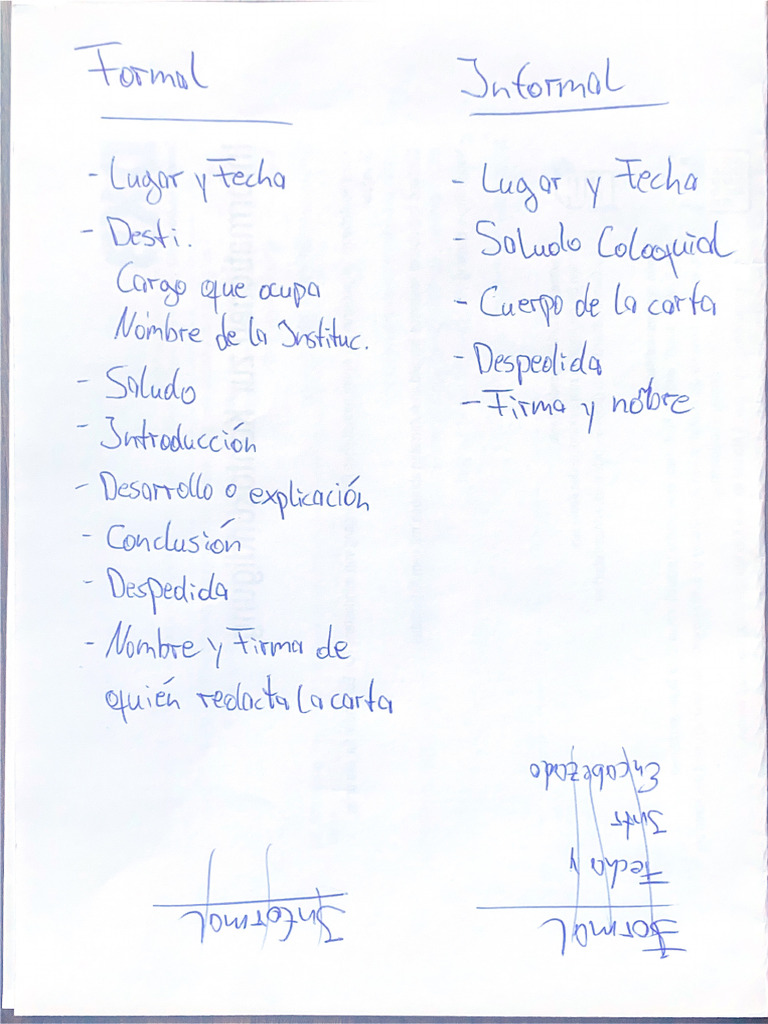 Formal
- Lugar y Fecha
- Desti.
Cargo que ocupa
Nombre de la Instituc.
- Saludo
- Introducción
- Desarrollo o explicación
- Conclusión
- Despedida
- Nombre y Firma de
quién redacta la carta
Informal
- Lugar y Fecha
- Saludo Coloquial
- Cuerpo de la carta
- Despedida
- Firma y nobre
Formal
Fecha y
Intr
Encabezado
Informal